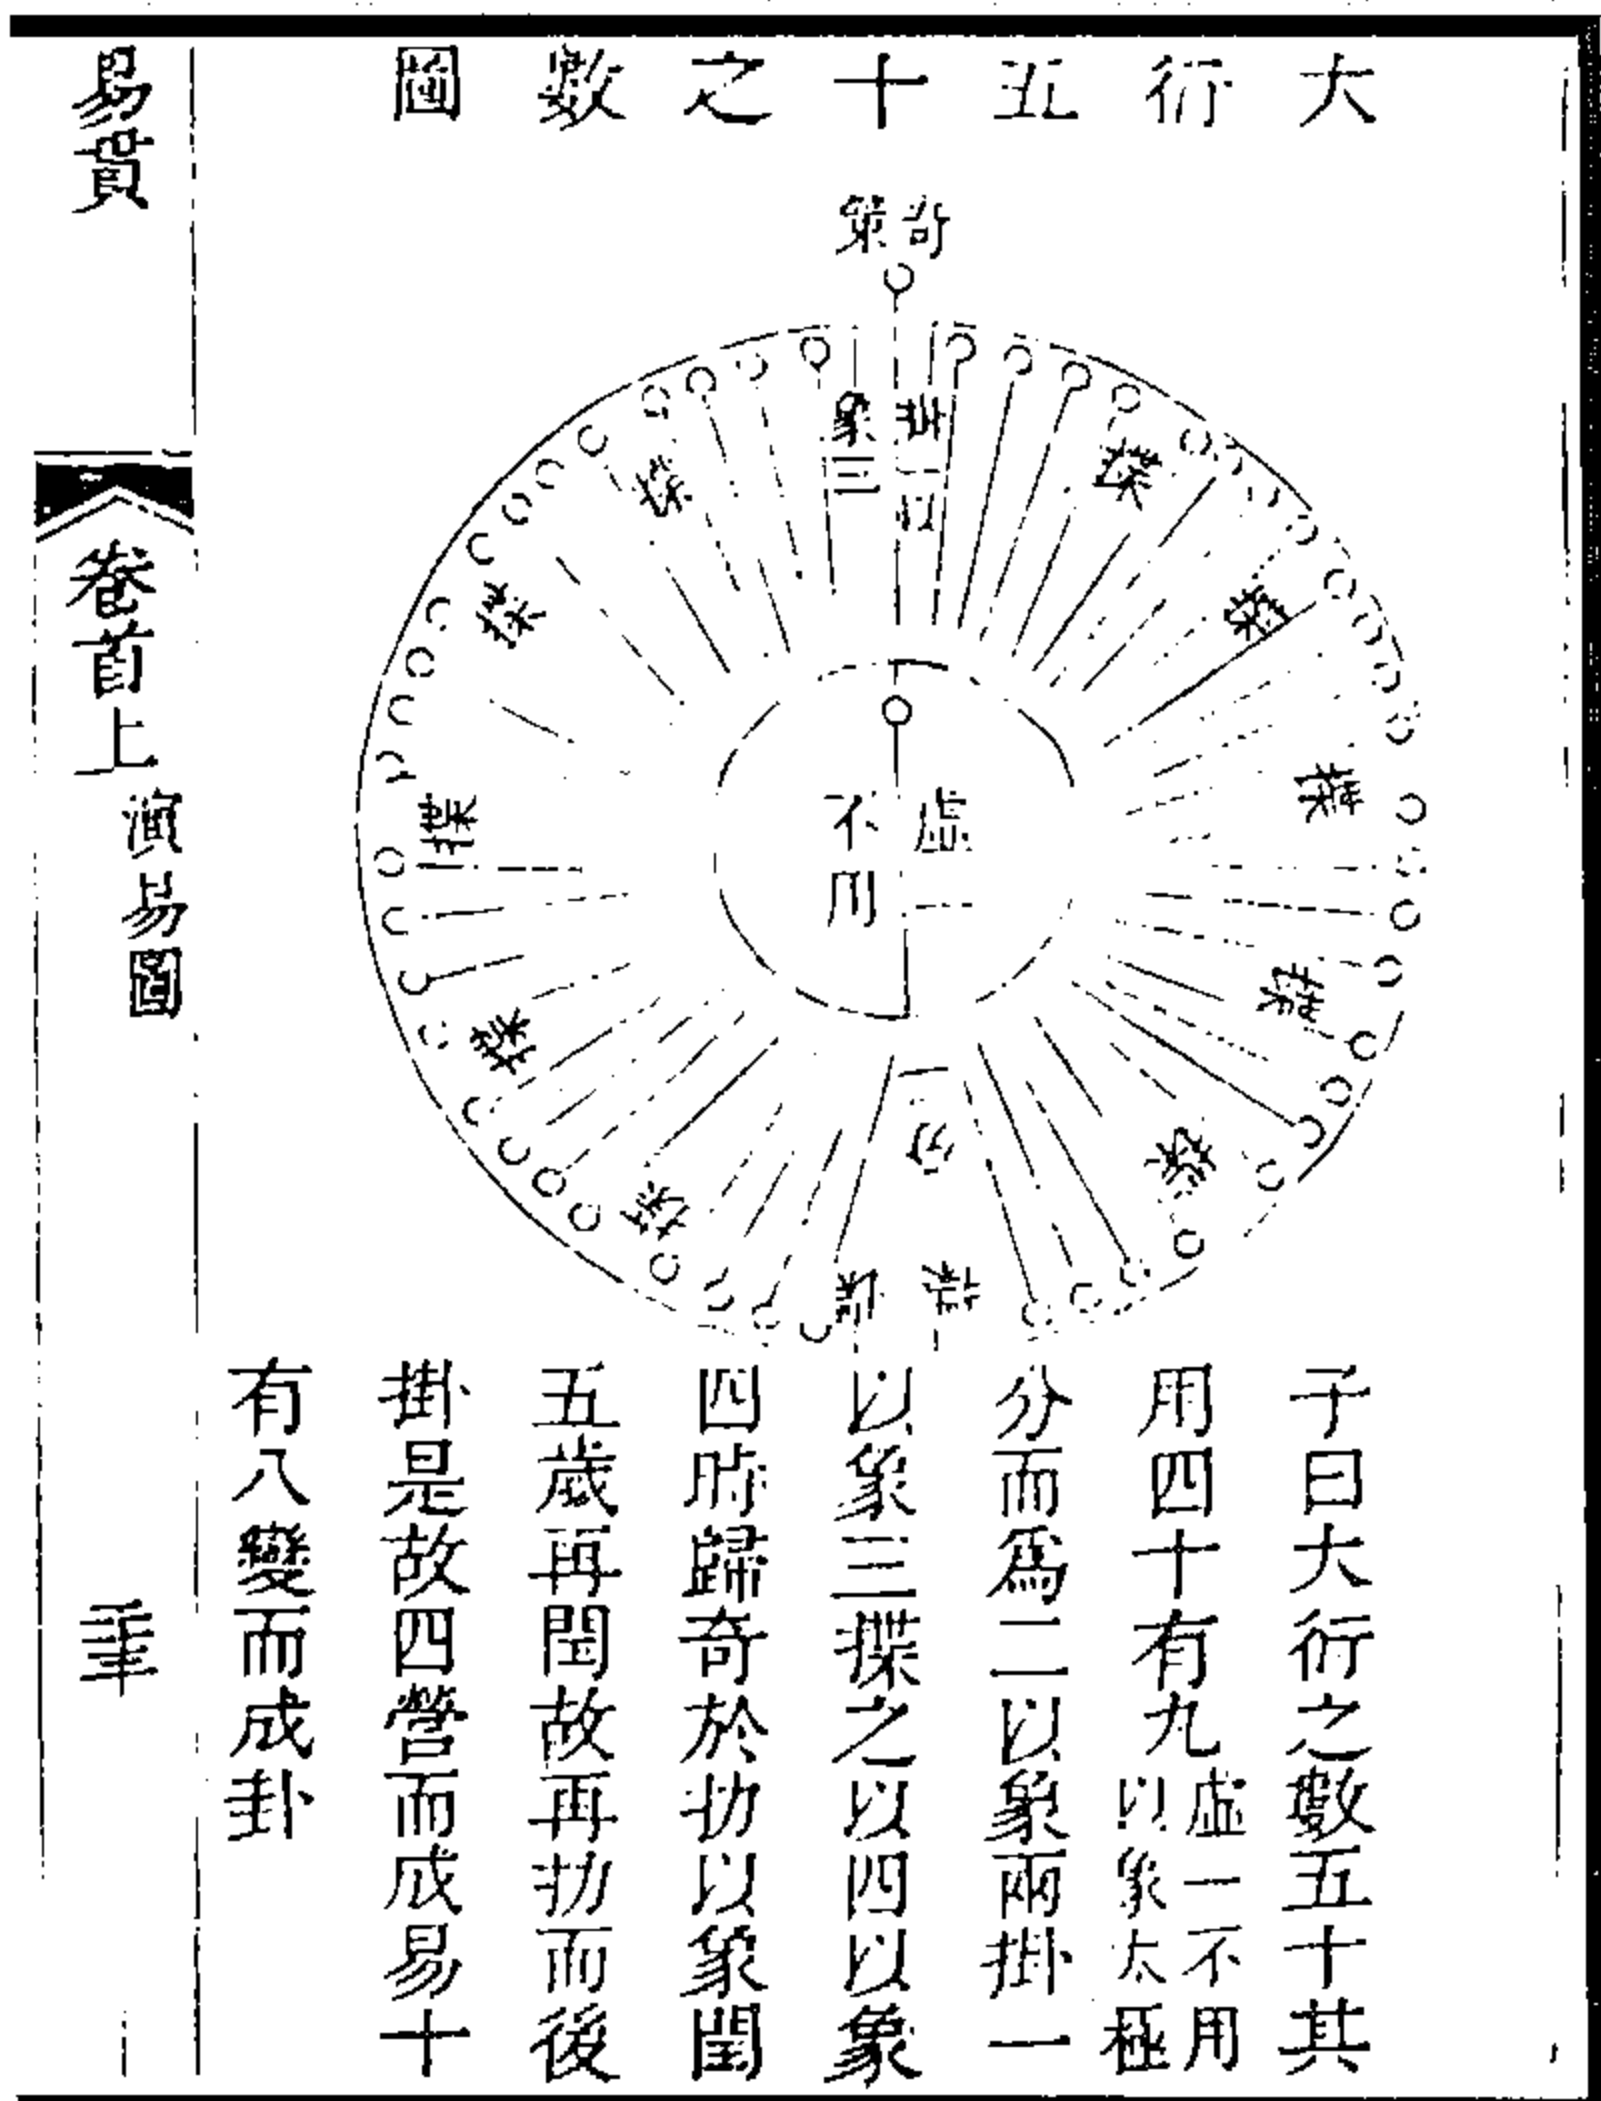 大衍五十之數圖
奇策
掛一以
象三
揲
揲
揲
揲
揲
揲
揲
揲
揲
揲
揲
虛
不用
子曰大衍之數五十其
用四十有九虛一不用以象太極
分而爲二以象兩掛一
以象三揲之以四以象
四時歸奇於扐以象閏
五歲再閏故再扐而後
掛是故四營而成易十
有八變而成卦
易貫
卷首上
演易圖